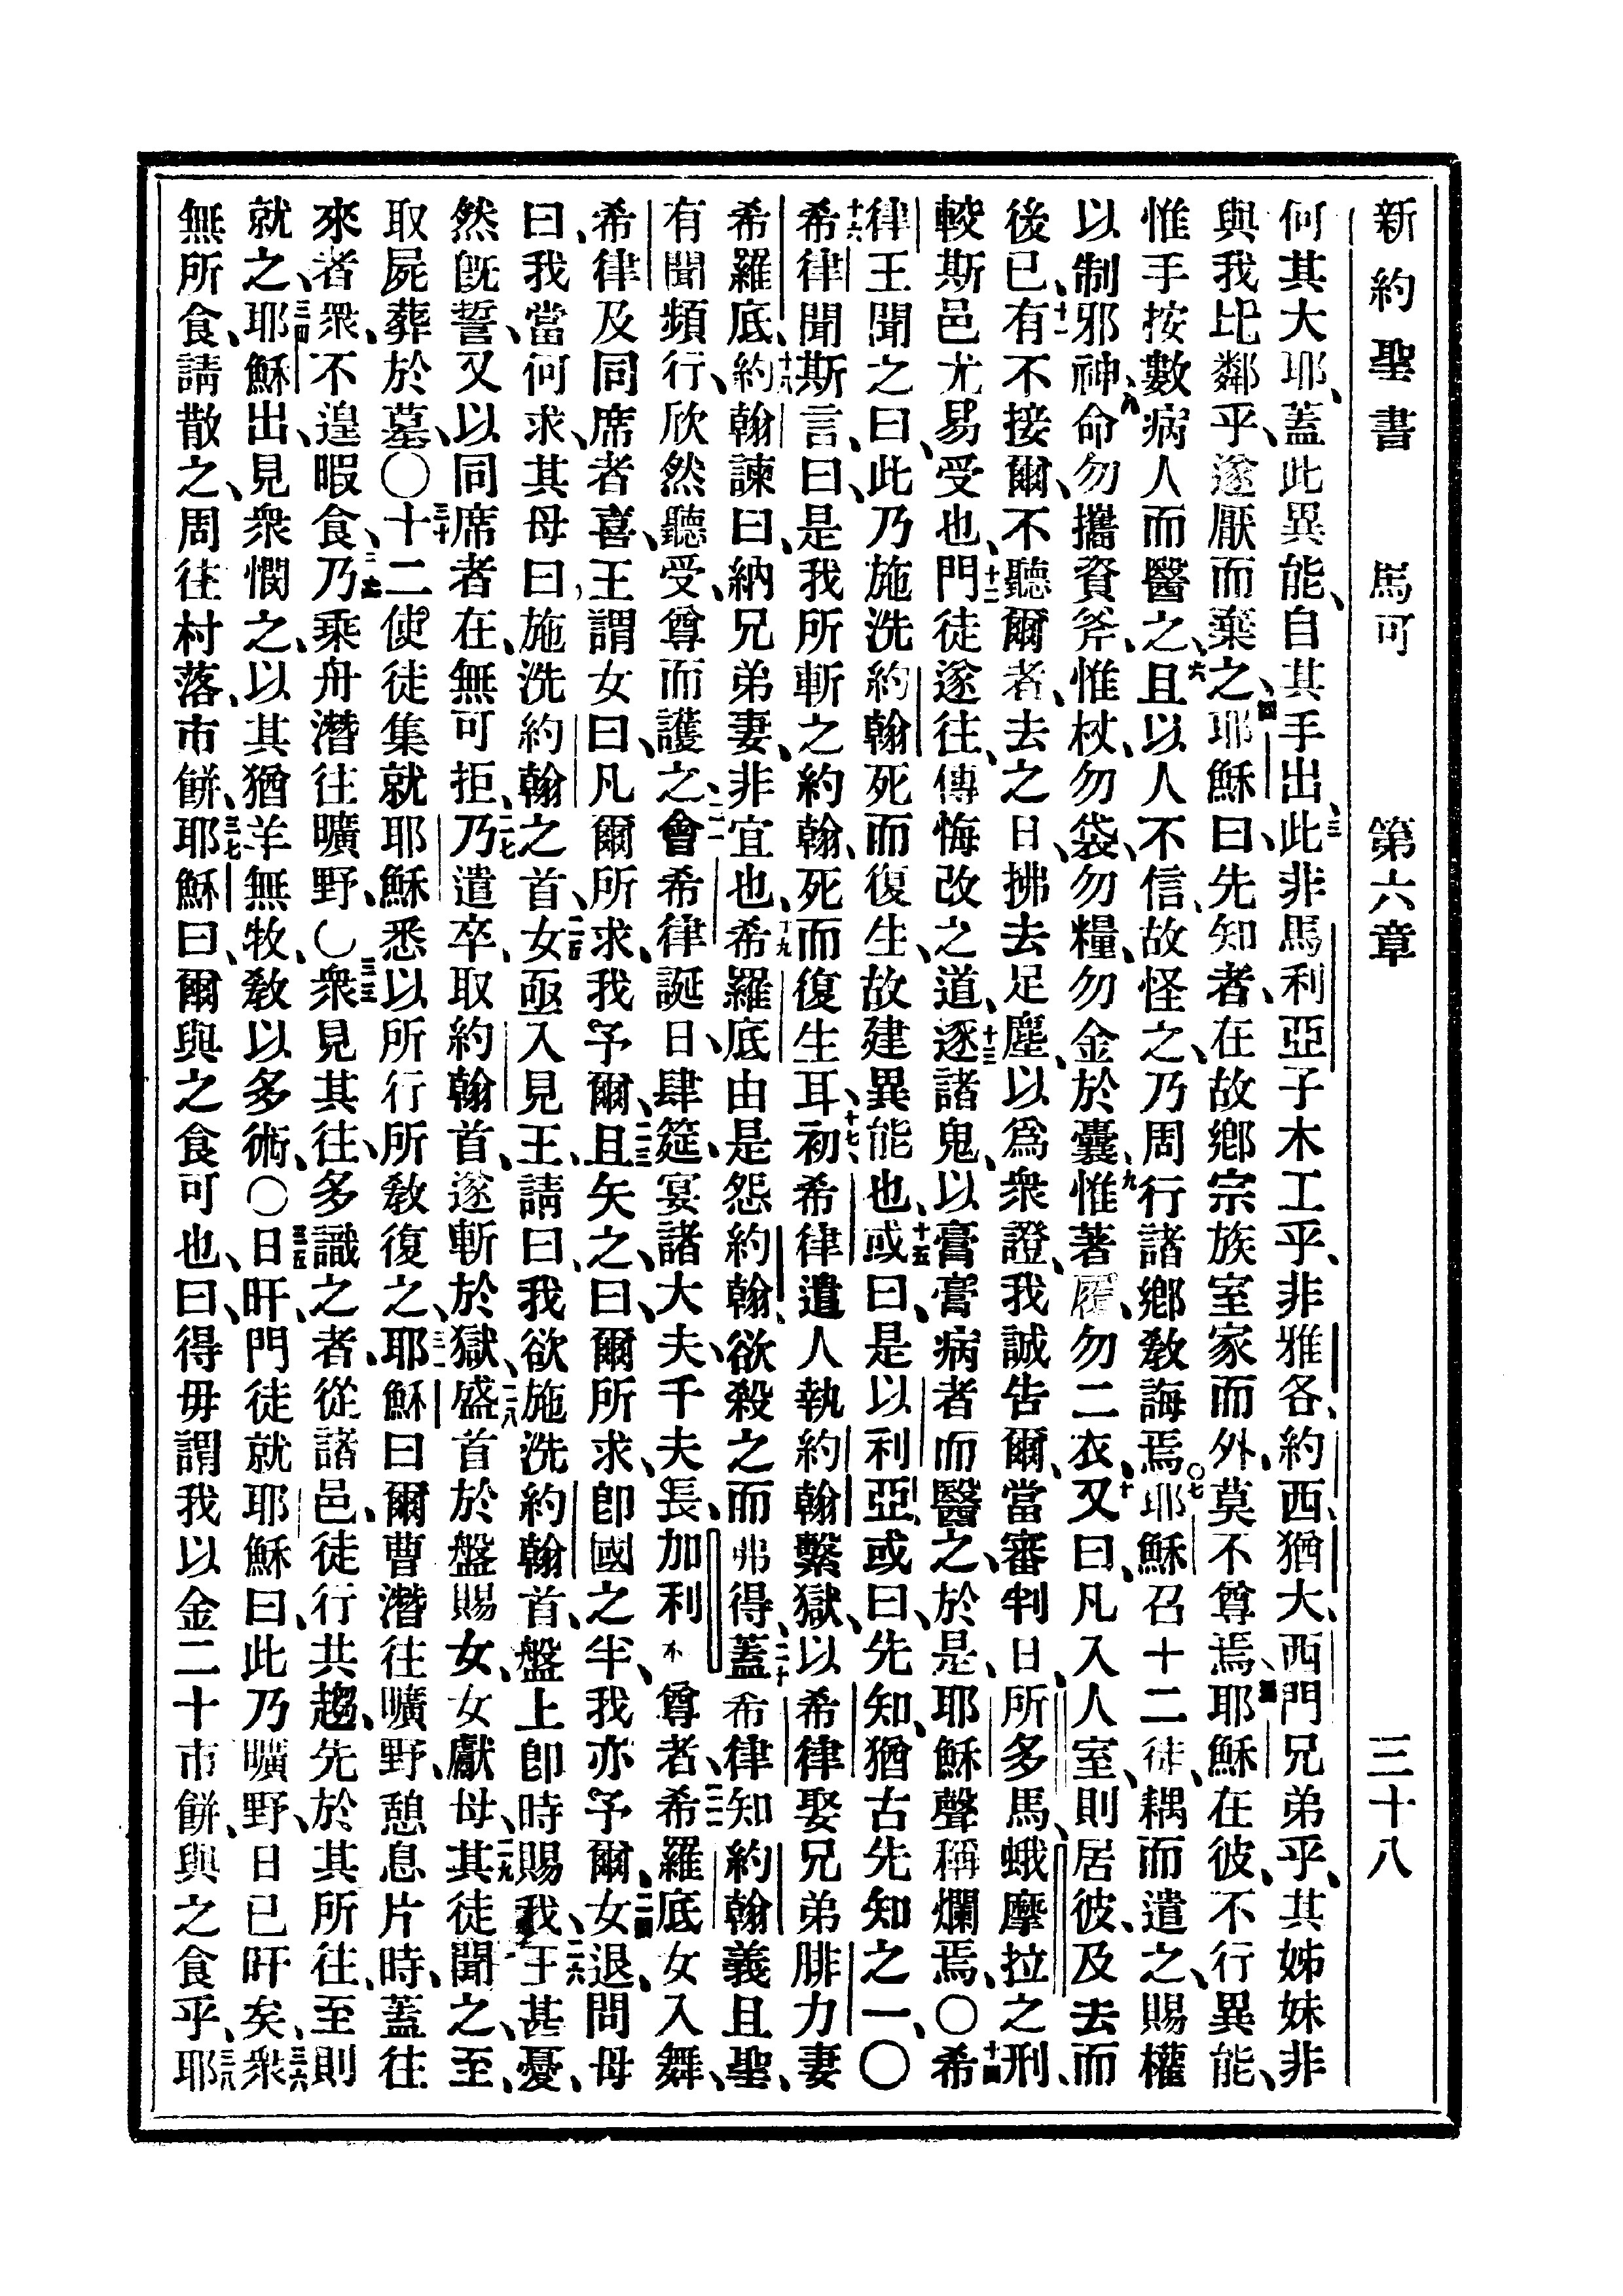 新約聖書 馬可 第六章 三十八
何其大耶、蓋此異能、自其手出、三此非馬利亞子木工乎、非雅各、約西、猶大、西門兄弟乎、其姊妹非
與我比鄰乎、遂厭而棄之、四耶穌曰、先知者、在故鄉宗族室家而外、莫不尊焉、五耶穌在彼、不行異能、
惟手按數病人而醫之、六且以人不信、故怪之、乃周行諸鄉敎誨焉、○七耶穌召十二徒、耦而遣之、賜權
以制邪神、八命勿攜資斧、惟杖、勿袋、勿糧、勿金於囊、九惟著履、勿二衣、十又曰、凡入人室、則居彼、及去而
後已、十一有不接爾、不聽爾者、去之日、拂去足塵、以爲衆證、我誠告爾、當審判日、所多馬、蛾摩拉之刑、
較斯邑尤易受也、十二門徒遂往、傳悔改之道、十三逐諸鬼、以膏膏病者而醫之、於是、耶穌聲稱爛焉、○十四希
律王聞之曰、此乃施洗約翰死而復生、故建異能也、十五或曰、是以利亞、或曰、先知、猶古先知之一、○
十六希律聞斯言、曰、是我所斬之約翰、死而復生耳、十七初希律遣人執約翰繫獄、以希律娶兄弟腓力妻
希羅底、十八約翰諫曰、納兄弟妻、非宜也、十九希羅底由是怨約翰、欲殺之而弗得、二十蓋希律知約翰義且聖、
有聞頻行、欣然聽受、尊而護之、二一會希律誕日、肆筵、宴諸大夫、千夫長、加利利尊者、二二希羅底女入舞、
希律及同席者喜、王謂女曰、凡爾所求、我予爾、二三且矢之、曰、爾所求、卽國之半、我亦予爾、二四女退、問母
曰、我當何求、其母曰、施洗約翰之首、二五女亟入見王、請曰、我欲施洗約翰首、盤上卽時賜我、二六王甚憂、
然旣誓、又以同席者在、無可拒、二七乃遣卒、取約翰首、遂斬於獄、二八盛首於盤賜女、女獻母、二九其徒聞之、至、
取屍葬於墓、○三十十二使徒集就耶穌、悉以所行所敎復之、三一耶穌曰爾曹潛往曠野、憩息片時、蓋往
來者衆、不遑暇食、三二乃乘舟潛往曠野、○三三衆見其往、多識之者、從諸邑、徒行共趨、先於其所往、至則
就之、三四耶穌出、見衆憫之、以其猶羊無牧、敎以多術、○三五日旰、門徒就耶穌曰、此乃曠野、日已旰矣、三六衆
無所食、請散之、周往村落、市餅、三七耶穌曰、爾與之食可也、曰、得毋謂我以金二十市餅、與之食乎、三八耶